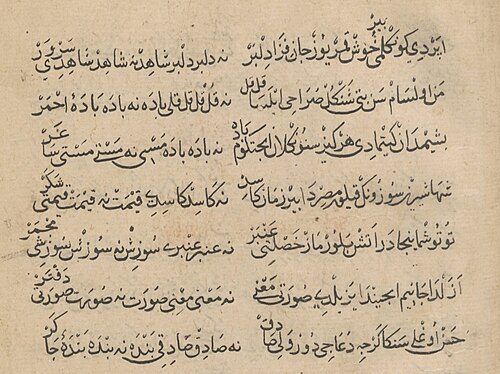 ایردی کونکلمی بیر خوش قمر یوز جان فزا دلبر نه دلبر دلبر شاهد نه شاهد شاهدی سرور
من اولسام سن بتی شنکل صراحی ایلما قلقل نه قلقل قلقلی باده نه باده بادهٔ احمر
بشیمدان کیتمادی هرکیز سنونکلان ایجتکوم باده نه باده بادهٔ مسی نه مستی مستی ساغر
شها شیرین سوزونک قیلور مصردا بیر زمان کاسد نه کاسد کاسدی قیمت نه قیمت قیمتی شکر
توتوشمایینجا در اتش بلورماز خصلتی عنبر نه عنبر عنبری سوزش نه سوزش سوزشی مجمر
ازلدا جانیم ایجیندا یزیلدی صورتی معنی نه معنی معنی صورت نه صورت صورتی دفتر
حسن اوغلی سنکا کرجه دعاجی دور ولی صادق نه صادق صادقی بنده نه بنده بندهٔ جاکر